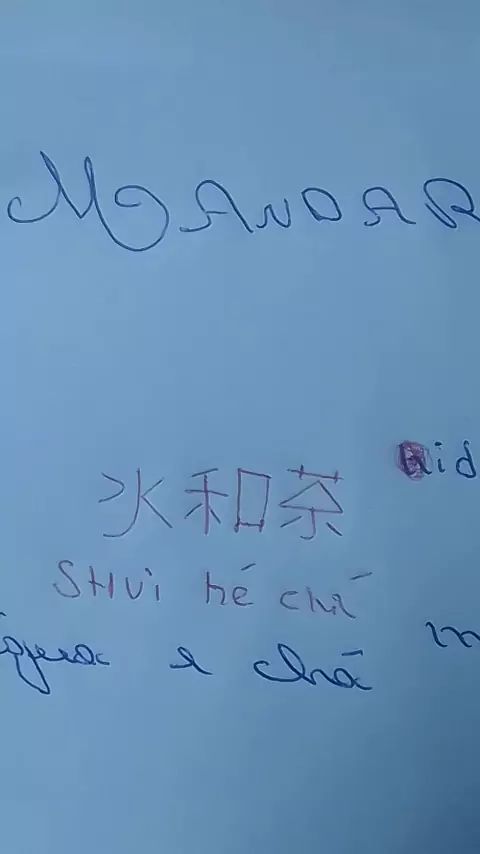 MANDAR
水和茶
SHUi hé chá
água e chá